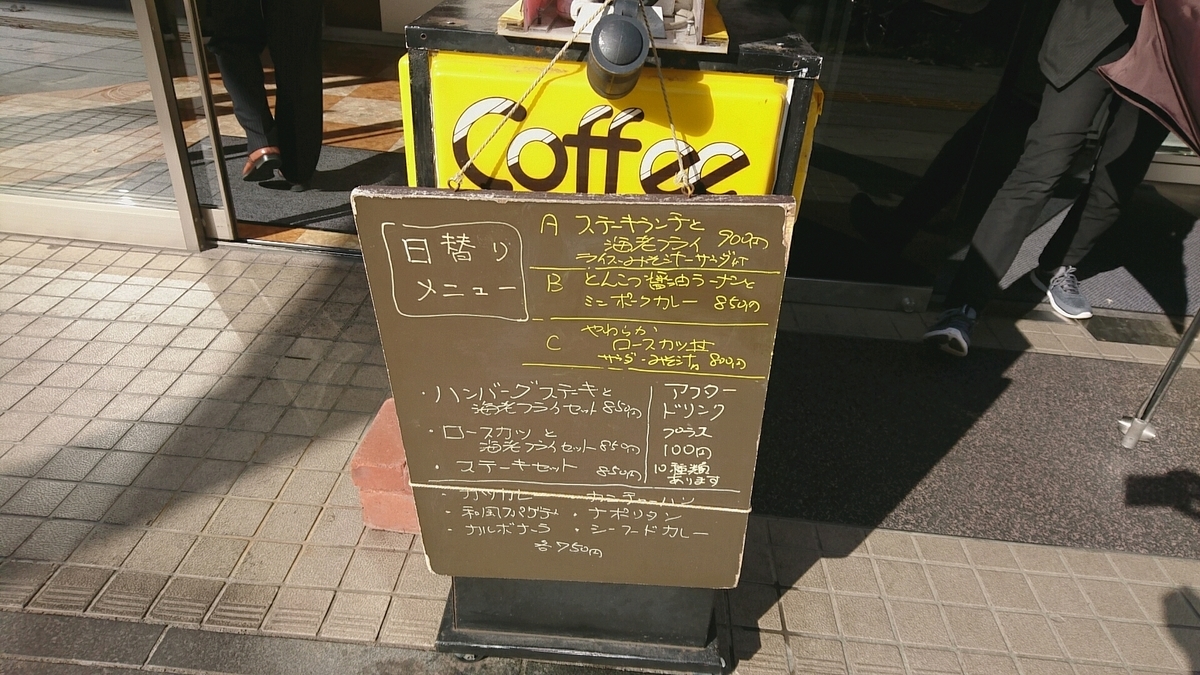 Coffee
日替り
メニュー
A ステーキランチと
海老フライ 900円
ライス・みそ汁・サラダ付
B とんこつ醤油ラーメンと
ミニポークカレー 850円
C やわらか
ロースカツ丼
サラダ・みそ汁 800円
・ハンバーグステーキと
海老フライセット 850円
・ロースカツと
海老フライセット 850円
・ステーキセット 850円
アフター
ドリンク
プラス
100円
10種類
あります
・カツカレー
・和風スパゲティ ・ナポリタン
・カルボナーラ ・シーフードカレー
各750円